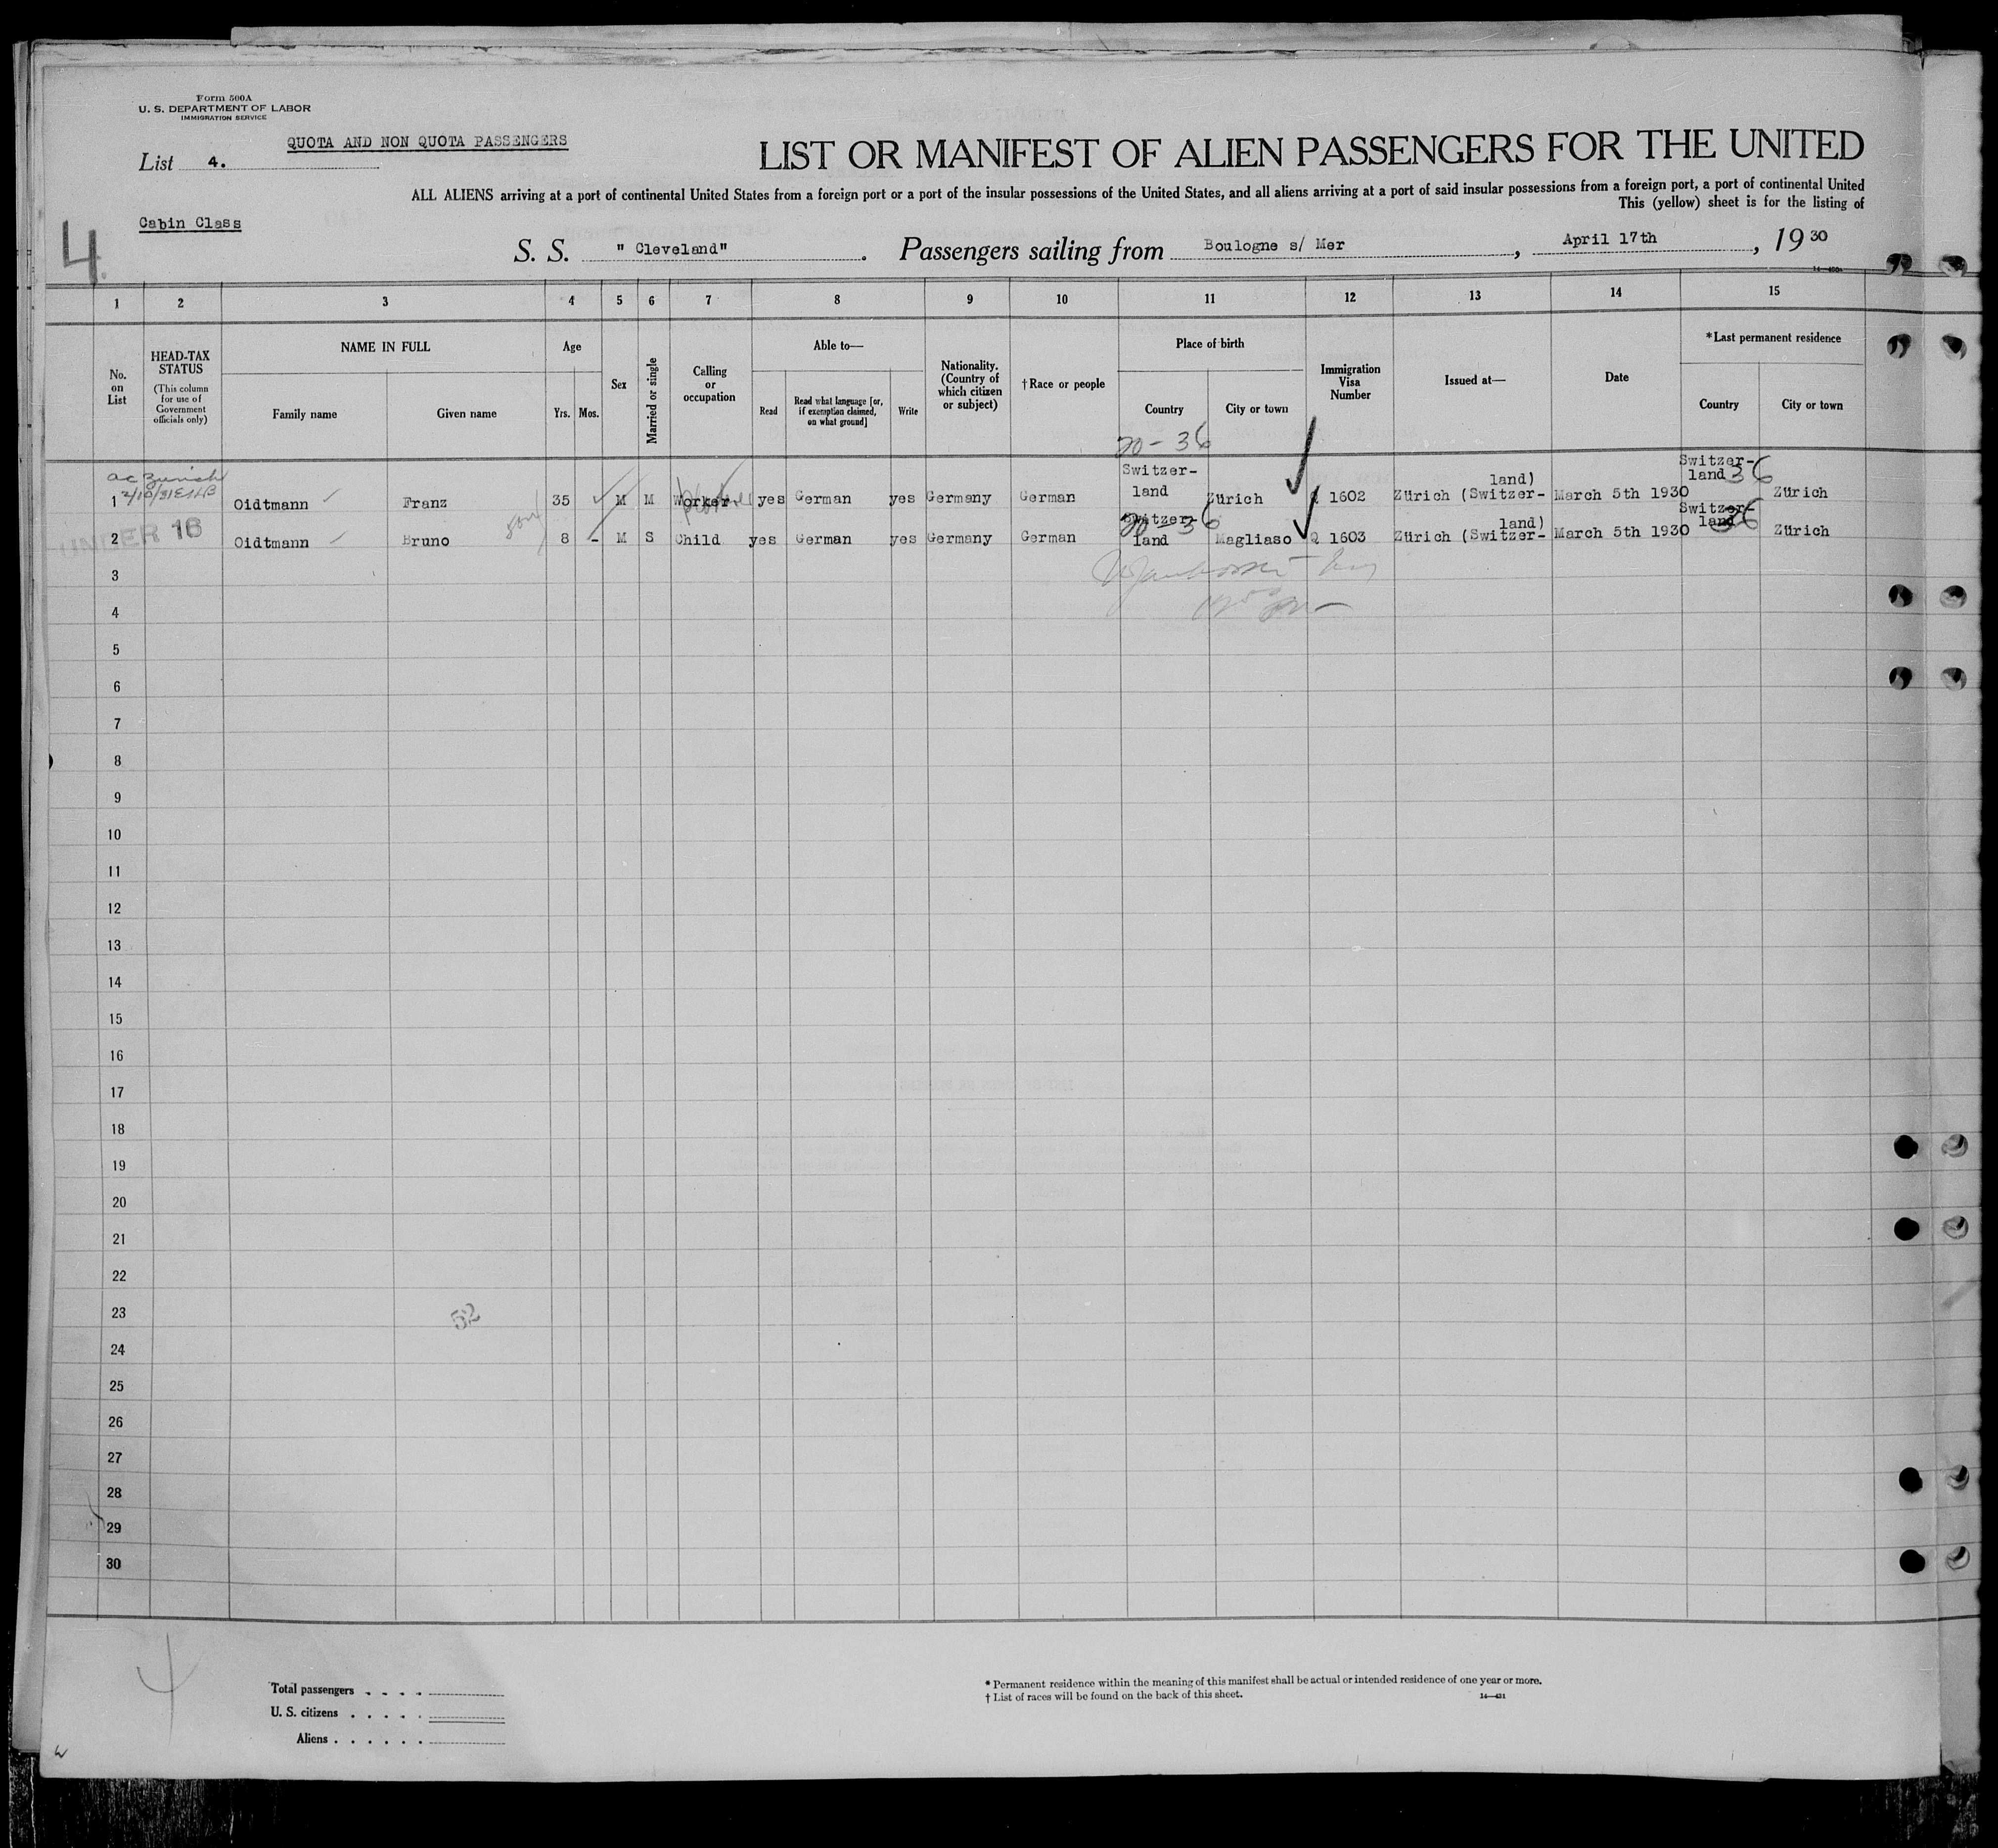 Form 500A
U. S. DEPARTMENT OF LABOR
IMMIGRATION SERVICE
QUOTA AND NON QUOTA PASSENGERS
List 4.
LIST OR MANIFEST OF ALIEN PASSENGERS FOR THE UNITED
ALL ALIENS arriving at a port of continental United States from a foreign port or a port of the insular possessions of the United States, and all aliens arriving at a port of said insular possessions from a foreign port, a port of continental United
This (yellow) sheet is for the listing of
Cabin Class
4.
S. S. " Cleveland" . Passengers sailing from Boulogne s/ Mer , April 17th , 19 30
1 2 3 4 5 6 7 8 9 10 11 12 13 14 15
No. on List
HEAD-TAX STATUS
(This column for use of Government officials only)
NAME IN FULL
Family name Given name
Age
Yrs. Mos.
Sex
Married or single
Calling or occupation
Able to—
Read
Read what language [or, if exemption claimed, on what ground]
Write
Nationality. (Country of which citizen or subject)
† Race or people
Place of birth
Country City or town
Immigration Visa Number
Issued at—
Date
* Last permanent residence
Country City or town
20-36
ac Zurich
1 Oidtmann Franz 35 M M Worker yes German yes Germany German Switzer-land Zürich 1602 Zürich (Switzer-land) March 5th 1930 Switzer-land 36 Zürich
UNDER 16
2 Oidtmann Bruno son 8 - M S Child yes German yes Germany German Switzer-land 20-36 Magliaso Q 1603 Zürich (Switzer-land) March 5th 1930 Switzer-land 36 Zürich
3
4
5
6
7
8
9
10
11
12
13
14
15
16
17
18
19
20
21
22
23
52
24
25
26
27
28
29
30
4
Total passengers . . . .
U. S. citizens . . . . .
Aliens . . . . . .
* Permanent residence within the meaning of this manifest shall be actual or intended residence of one year or more.
† List of races will be found on the back of this sheet.
14—431